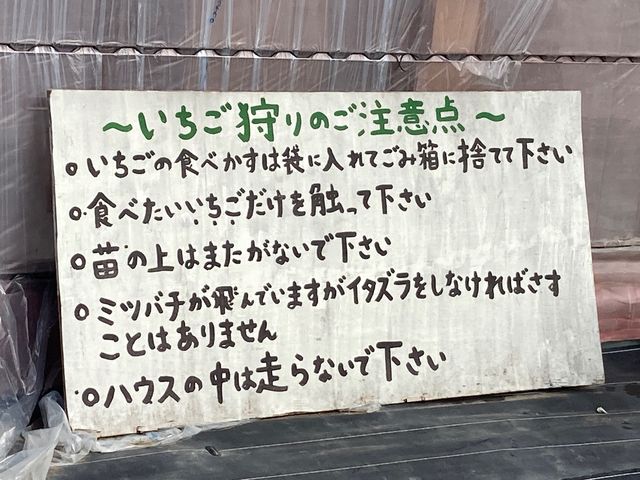 ～いちご狩りのご注意点～
○いちごの食べかすは袋に入れてごみ箱に捨てて下さい
○食べたいいちごだけを触って下さい
○苗の上はまたがないで下さい
○ミツバチが飛んでいますがイタズラをしなければさす
ことはありません
○ハウスの中は走らないで下さい